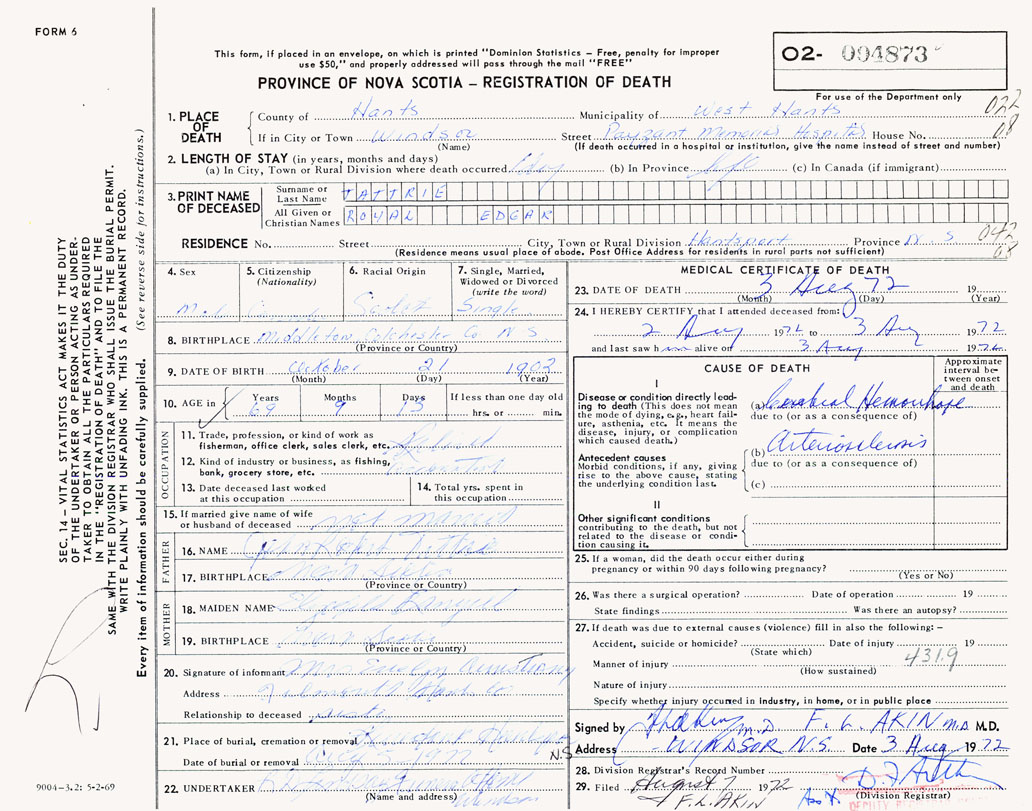 FORM 6
This form, if placed in an envelope, on which is printed "Dominion Statistics – Free, penalty for improper
use $50," and properly addressed will pass through the mail "FREE"
PROVINCE OF NOVA SCOTIA – REGISTRATION OF DEATH
O2- 094873
For use of the Department only
022
08
1. PLACE OF DEATH
County of Hants Municipality of West Hants
If in City or Town Windsor Street Payzant Memorial Hospital House No.
(Name) (If death occurred in a hospital or institution, give the name instead of street and number)
2. LENGTH OF STAY (in years, months and days)
(a) In City, Town or Rural Division where death occurred 1 day (b) In Province life (c) In Canada (if immigrant)
3. PRINT NAME OF DECEASED
Surname or Last Name TATTRIE
All Given or Christian Names ROYAL EDGAR
RESIDENCE No. Street City, Town or Rural Division Hantsport Province N.S
(Residence means usual place of abode. Post Office Address for residents in rural parts not sufficient)
042
08
4. Sex
5. Citizenship (Nationality)
6. Racial Origin
7. Single, Married, Widowed or Divorced (write the word)
Single
8. BIRTHPLACE Middleton Colchester Co N S
(Province or Country)
9. DATE OF BIRTH October 21 1902
(Month) (Day) (Year)
10. AGE in Years Months Days If less than one day old
69 9 13 hrs. or min.
OCCUPATION
11. Trade, profession, or kind of work as fisherman, office clerk, sales clerk, etc.
12. Kind of industry or business, as fishing, bank, grocery store, etc.
13. Date deceased last worked at this occupation
14. Total yrs. spent in this occupation
15. If married give name of wife or husband of deceased not married
FATHER
16. NAME John Robert Tattrie
17. BIRTHPLACE Nova Scotia
(Province or Country)
MOTHER
18. MAIDEN NAME
19. BIRTHPLACE Nova Scotia
(Province or Country)
20. Signature of informant Mrs Evelyn Armstrong
Address Falmouth Hants Co
Relationship to deceased sister
21. Place of burial, cremation or removal N.S
Date of burial or removal
22. UNDERTAKER
(Name and address) Windsor
MEDICAL CERTIFICATE OF DEATH
23. DATE OF DEATH 3 Aug 72 19
(Month) (Day) (Year)
24. I HEREBY CERTIFY that I attended deceased from:
2 Aug 1972 to 3 Aug 1972
and last saw him alive on 3 Aug 1972
CAUSE OF DEATH
Approximate interval between onset and death
I
Disease or condition directly leading to death (This does not mean the mode of dying, e.g., heart failure, asthenia, etc. It means the disease, injury, or complication which caused death.)
(a) Cerebral Hemorrhage
due to (or as a consequence of)
Antecedent causes
Morbid conditions, if any, giving rise to the above cause, stating the underlying condition last.
(b) Arteriosclerosis
due to (or as a consequence of)
(c)
II
Other significant conditions
contributing to the death, but not related to the disease or condition causing it.
25. If a woman, did the death occur either during pregnancy or within 90 days following pregnancy?
(Yes or No)
26. Was there a surgical operation? Date of operation 19
State findings Was there an autopsy?
27. If death was due to external causes (violence) fill in also the following: –
Accident, suicide or homicide? Date of injury 19
(State which)
Manner of injury 431.9
(How sustained)
Nature of injury
Specify whether injury occurred in industry, in home, or in public place
Signed by M.D. F. L. AKIN M.D M.D.
Address WINDSOR N.S. Date 3 Aug 1972
28. Division Registrar's Record Number
29. Filed August 7 1972
F. L. AKIN
(Division Registrar)
DEPUTY
SEC. 14 – VITAL STATISTICS ACT MAKES IT THE DUTY
OF THE UNDERTAKER OR PERSON ACTING AS UNDER.
TAKER TO OBTAIN ALL THE PARTICULARS REQUIRED
IN THE "REGISTRATION OF DEATH" AND TO FILE THE
SAME WITH THE DIVISION REGISTRAR WHO SHALL ISSUE THE BURIAL PERMIT.
WRITE PLAINLY WITH UNFADING INK. THIS IS A PERMANENT RECORD.
Every item of information should be carefully supplied. (See reverse side for instructions.)
9004-3.2: 5-2-69